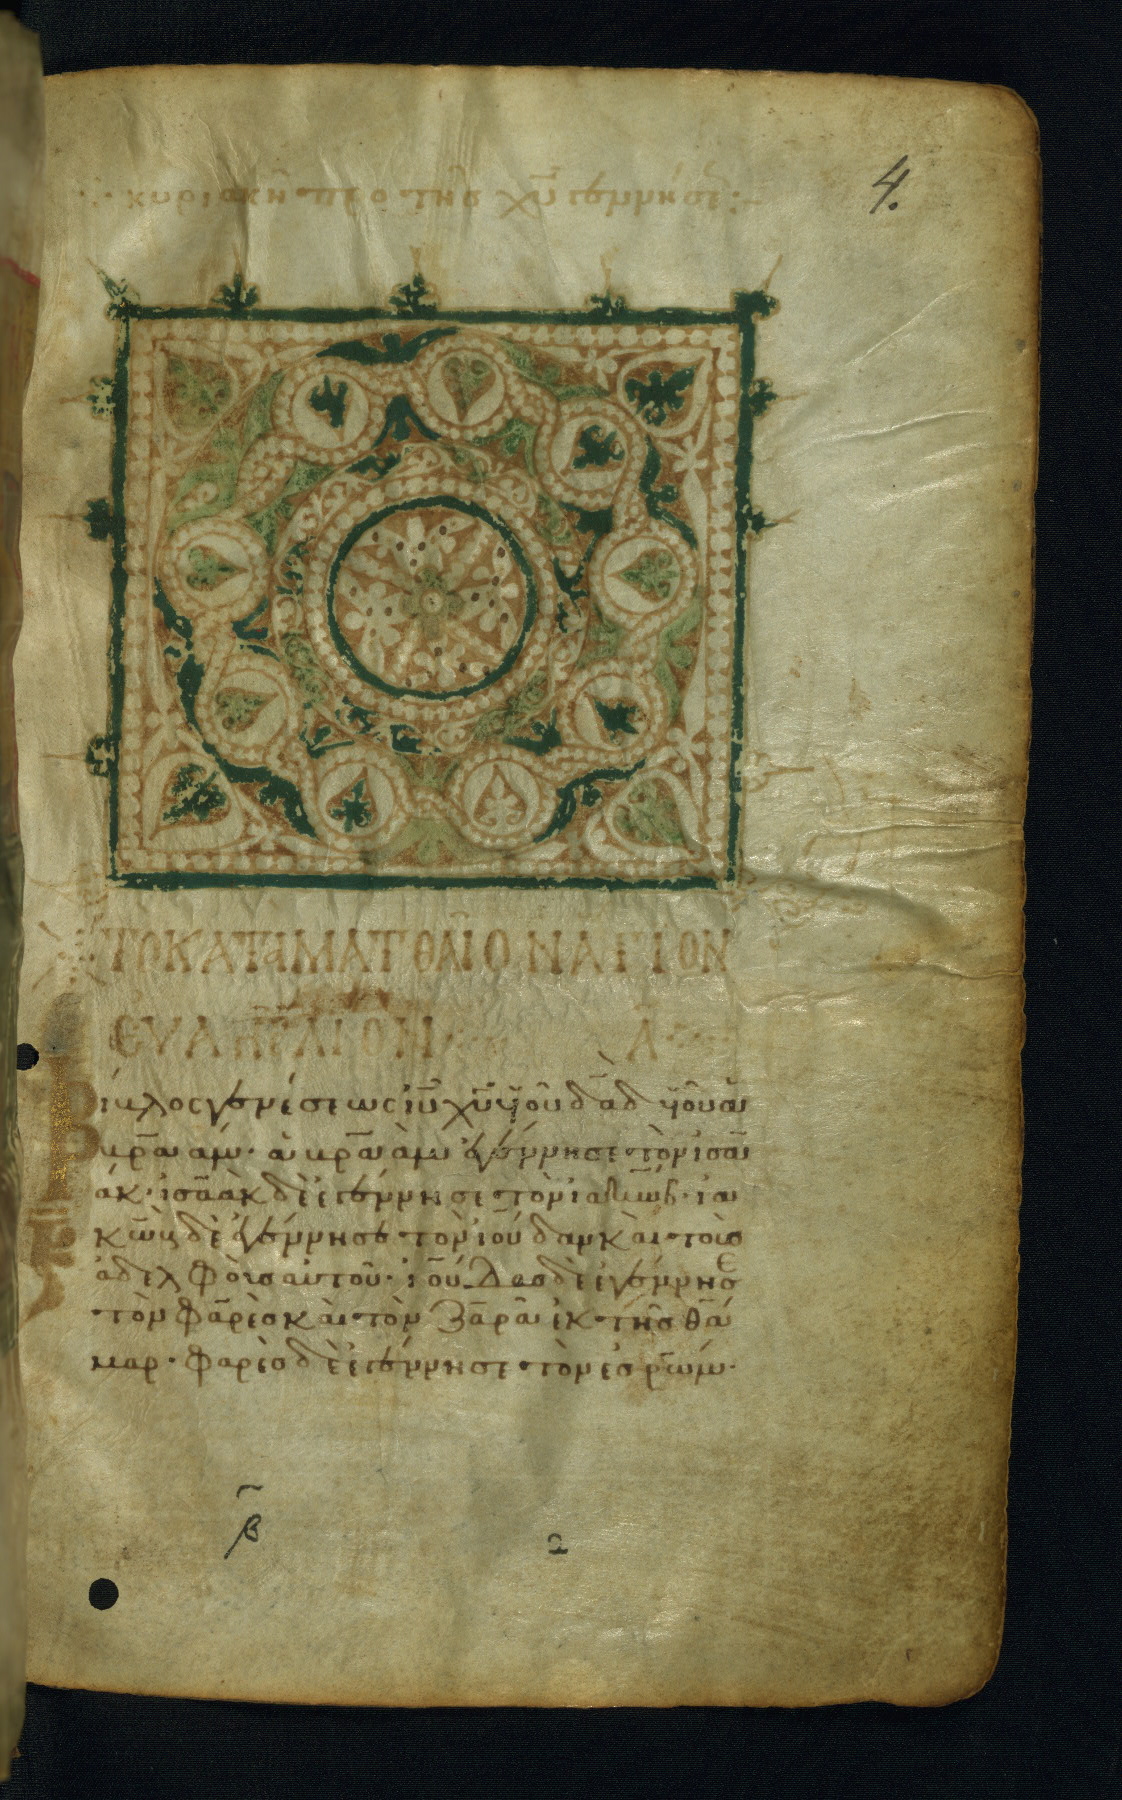 κυριακῆ πρὸ τῆς χ̅υ̅ γεννήσε
4.
ΤΟ ΚΑΤΑ ΜΑΤΘΑΙΟΝ ΑΓΙΟΝ
ΕΥΑΓΓΕΛΙΟΝ Α
Βίβλος γενέσεως ι̅υ̅ χ̅υ̅ υἱοῦ δ̅α̅δ υἱοῦ ἀ
βραάμ· ἀβραὰμ ἐγέννησε τὸν ἰσα
άκ· ἰσαὰκ δὲ ἐγέννησε τὸν ἰακώβ· ἰα
κὼβ δὲ ἐγέννησε τὸν ἰούδαν καὶ τοὺς
ἀδελφοὺς αὐτοῦ· ἰούδας δὲ ἐγέννησε
τὸν φαρὲς καὶ τὸν ζαρὰ ἐκ τῆς θά
μαρ· φαρὲς δὲ ἐγέννησε τὸν ἐσρώμ·
β̅